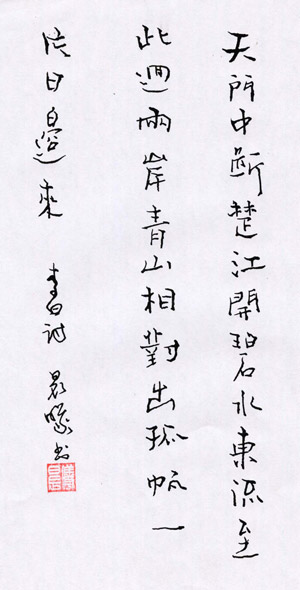 天門中斷楚江開碧水東流至
此迴兩岸青山相對出孤帆一
片日邊來 李白詩 書